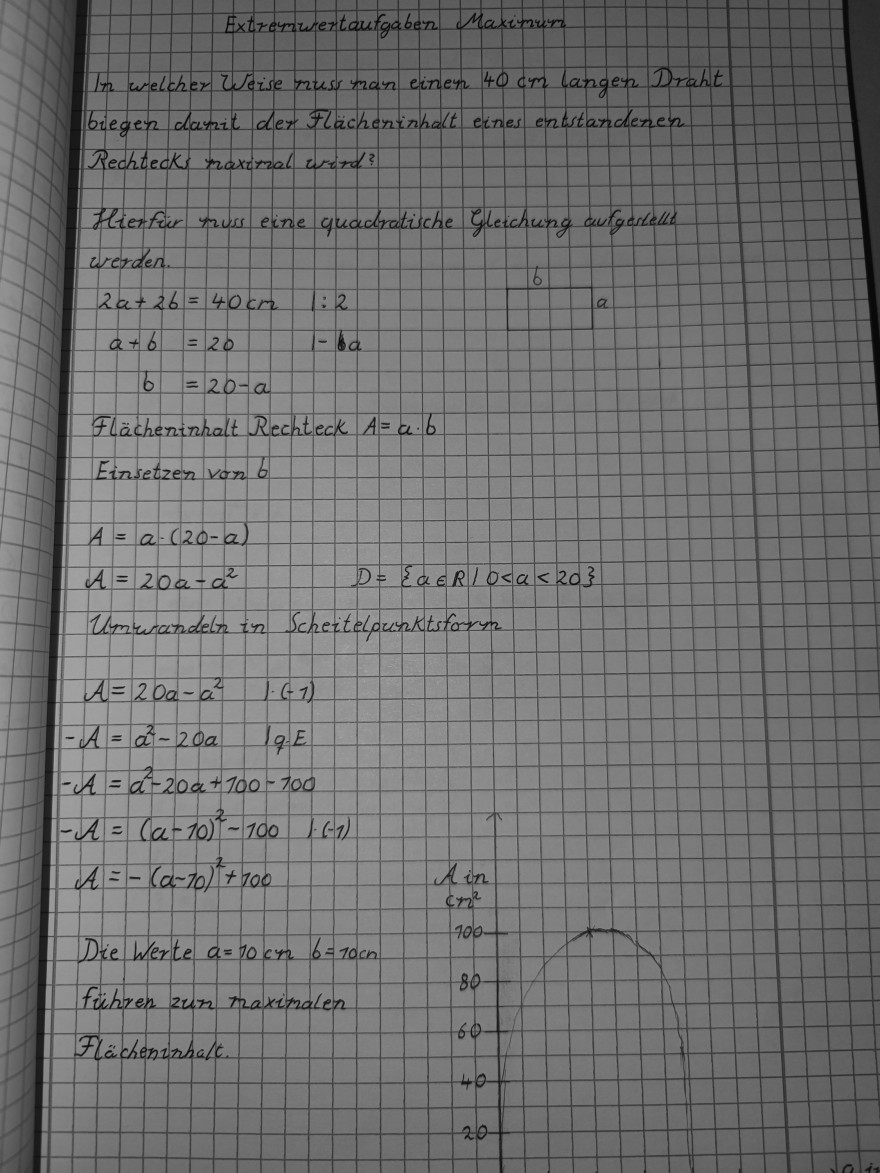 Extremwertaufgaben Maximum
In welcher Weise muss man einen 40 cm langen Draht
biegen damit der Flächeninhalt eines entstandenen
Rechtecks maximal wird?
Hierfür muss eine quadratische Gleichung aufgestellt
werden.
b
2a + 2b = 40 cm |: 2
a
a + b = 20 |- a
b = 20 - a
Flächeninhalt Rechteck A = a · b
Einsetzen von b
A = a · (20 - a)
A = 20a - a² D = {a ∈ R / 0 < a < 20}
Umwandeln in Scheitelpunktsform
A = 20a - a² |· (-1)
-A = a² - 20a | q.E
-A = a² - 20a + 100 - 100
-A = (a - 10)² - 100 |· (-1)
A = - (a - 10)² + 100
Die Werte a = 10 cm b = 10 cm
führen zum maximalen
Flächeninhalt.
A in
cm²
100
80
60
40
20